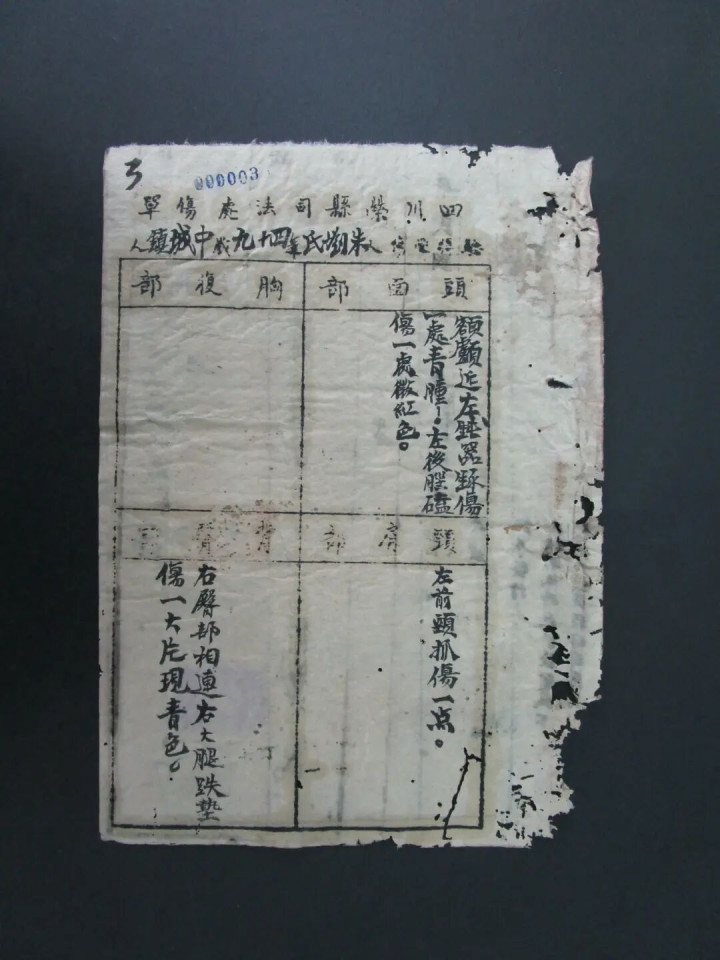 3
000003
四川榮縣司法處傷單
驗得受傷人朱劉氏年四十九歲中城鎮人
頭面部
胸復部
額顱近左鈍器
一處青腫。左後腿磕
傷一處微紅色。
頸肩部
背臀部
左前頸抓傷一点。
右臀部相連右大腿跌墊
傷一大片現青色。